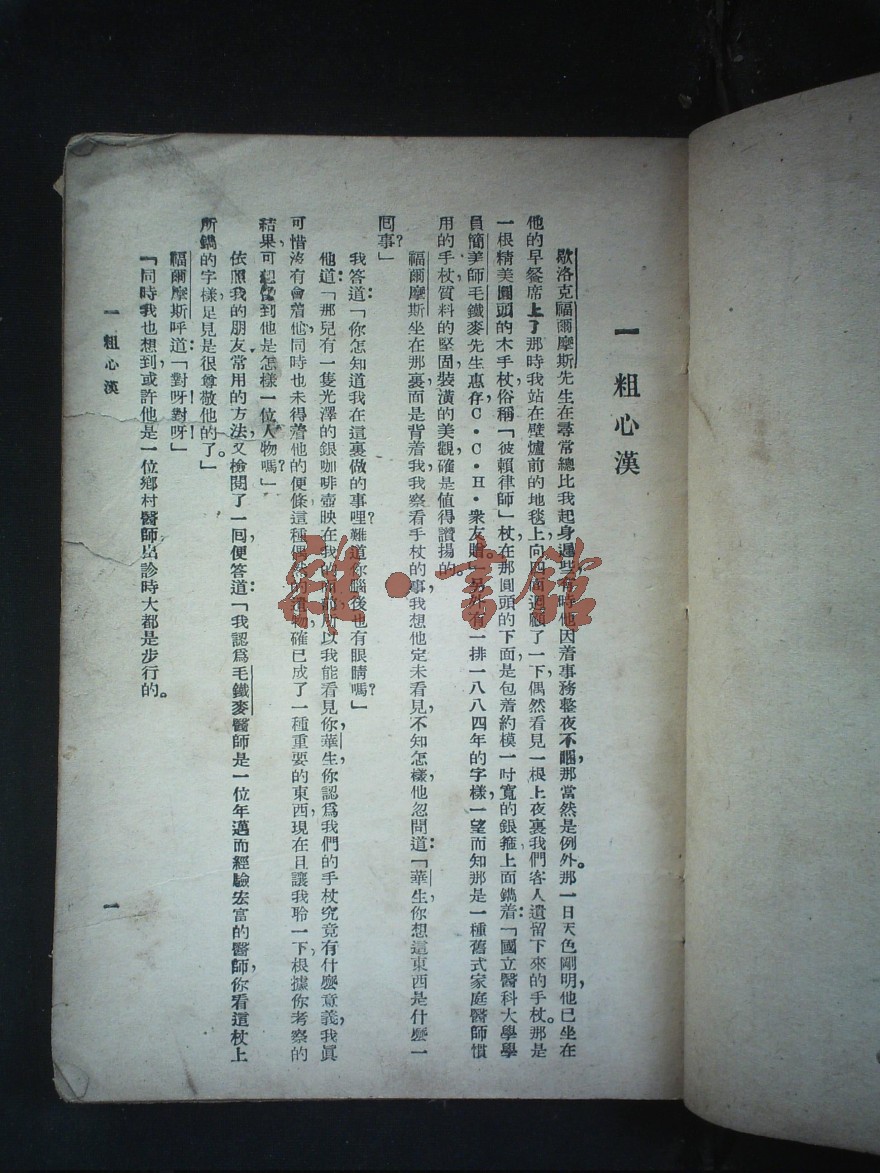 一　粗心漢
歇洛克福爾摩斯先生在尋常總比我起身遲些，有時他因着事務整夜不睏，那當然是例外。那一日天色剛明，他已坐在
他的早餐席上了。那時我站在壁爐前的地毯上，向四面迴顧了一下，偶然看見一根上夜裏我們客人遺留下來的手杖。那是
一根精美圓頭的木手杖，俗稱「彼賴律師」杖，在那圓頭的下面，是包着約模一吋寬的銀箍，上面鐫着：「國立醫科大學學
員簡美師毛鐵麥先生惠存C・C・H・衆友贈。」另外有一排一八八四年的字樣，一望而知那是一種舊式家庭醫師慣
用的手杖，質料的堅固，裝潢的美觀，確是值得讚揚的。
福爾摩斯坐在那裏，而是背着我，我察看手杖的事，我想他定未看見，不知怎樣，他忽問道：「華生，你想這東西是什麼一
回事？」
我答道：「你怎知道我在這裏做的事哩？難道你腦後也有眼睛嗎？」
他道：「那兒有一隻光澤的銀咖啡壺，映在我的面部，所以我能看見你，華生，你認爲我們的手杖究竟有什麼意義，我眞
可惜沒有會着他，同時也未得着他的便條，這種偶然的遺物，確已成了一種重要的東西，現在且讓我聆一下，根據你考察的
結果，可想像到他是怎樣一位人物嗎？」
依照我的朋友常用的方法，又檢閱了一回，便答道：「我認爲毛鐵麥醫師是一位年邁而經驗宏富的醫師，你看這杖上
所鐫的字樣，足見是很尊敬他的了。」
福爾摩斯呼道：「對呀！對呀！」
「同時我也想到，或許他是一位鄉村醫師，出診時大都是步行的。
一　粗心漢
一
雜・書館